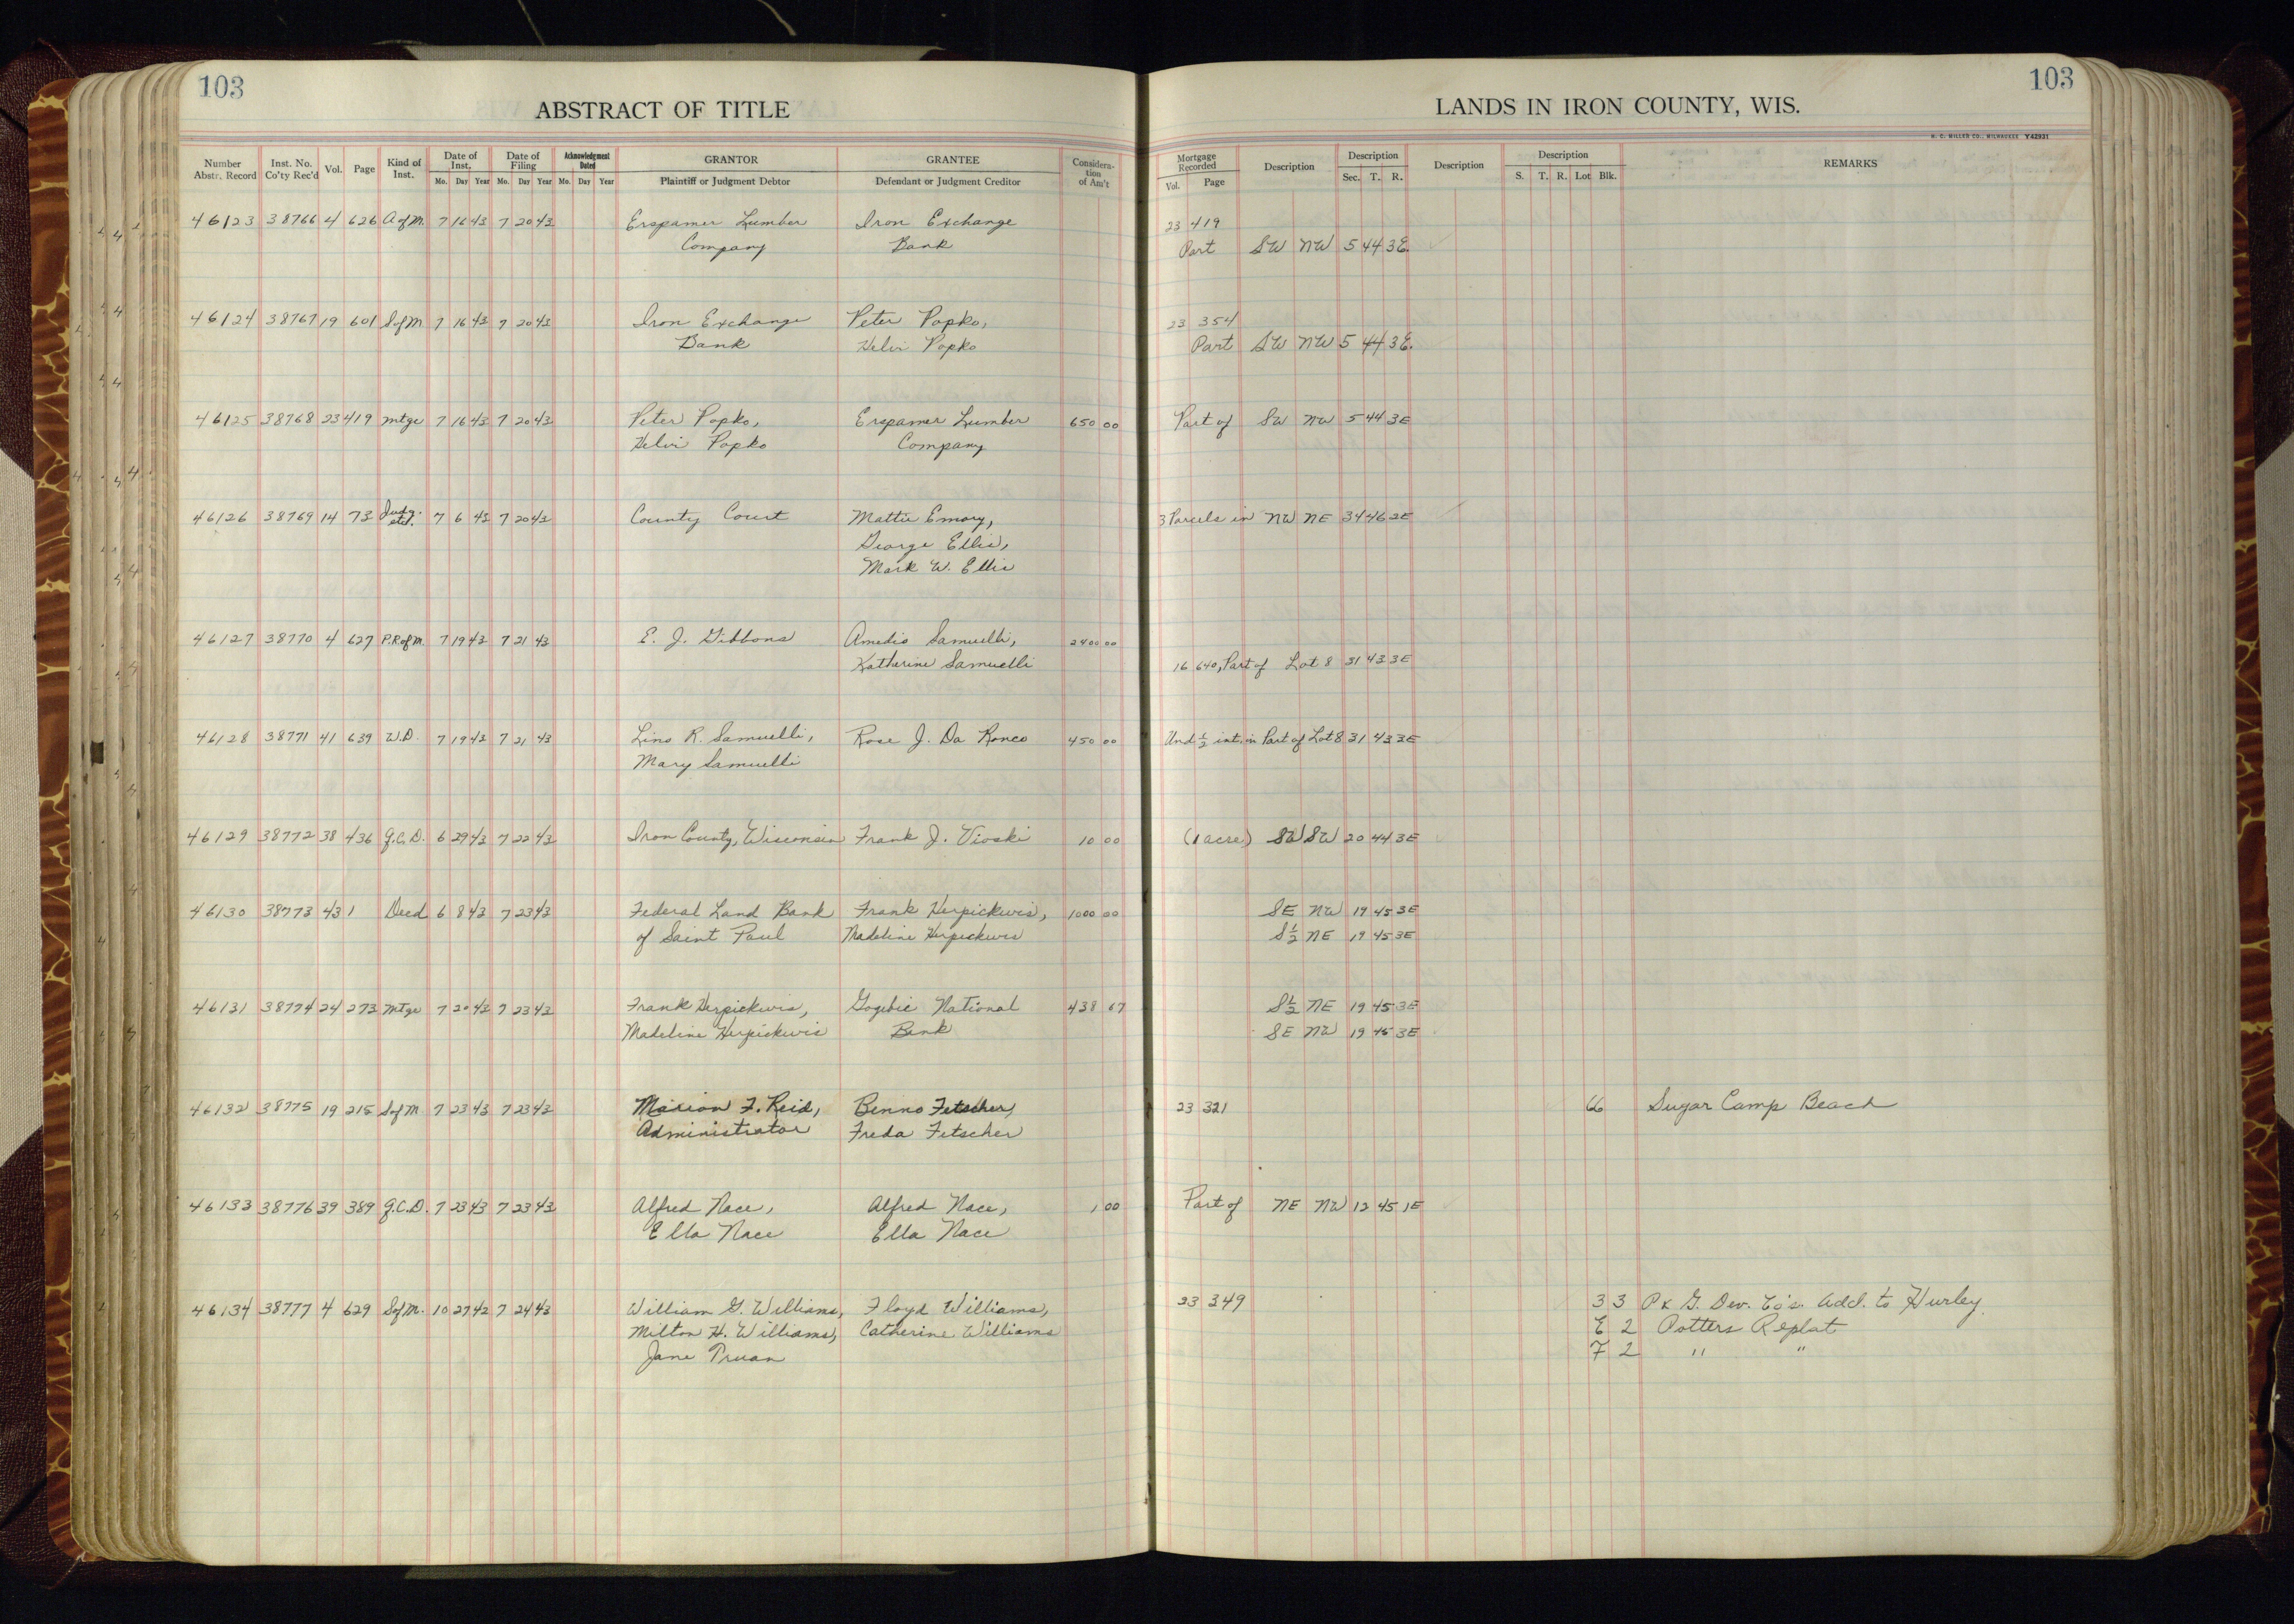 103
ABSTRACT OF TITLE
Number Abstr. Record Inst. No. Co'ty Rec'd Vol. Page Kind of Inst. Date of Inst. Mo. Day Year Date of Filing Mo. Day Year Acknowledgment Dated Mo. Day Year GRANTOR Plaintiff or Judgment Debtor GRANTEE Defendant or Judgment Creditor Considera-tion of Am't
46123 38766 4 626 A of M. 7 16 43 7 20 43 Erspamer Lumber Iron Exchange
Company Bank
46124 38767 19 601 S of M. 7 16 43 7 20 43 Iron Exchange Peter Popko,
Bank Helvi Popko
46125 38768 23 419 mtge 7 16 43 7 20 43 Peter Popko, Erspamer Lumber 650 00
Helvi Popko Company
46126 38769 14 73 Judg. etd. 7 6 43 7 20 43 County Court Mattie Emory,
George Ellis,
Mark W. Ellis
46127 38770 4 627 P.R of M. 7 19 43 7 21 43 E. J. Gibbons Amedio Samuelli, 2400 00
Katherine Samuelli
46128 38771 41 639 W.D. 7 19 43 7 21 43 Lino R. Samuelli, Rose J. Da Ronco 450 00
Mary Samuelli
46129 38772 38 436 Q.C.D. 6 29 43 7 22 43 Iron County, Wisconsin Frank J. Vioski 10 00
46130 38773 43 1 Deed 6 8 43 7 23 43 Federal Land Bank Frank Herpickwis, 1000 00
of Saint Paul Madeline Herpickwis
46131 38774 24 273 mtge 7 20 43 7 23 43 Frank Herpickwis, Gogebic National 438 67
Madeline Herpickwis Bank
46132 38775 19 215 S of M 7 23 43 7 23 43 Marion F. Reid, Benno Fetscher,
Administrator Freda Fetscher
46133 38776 39 389 Q.C.D. 7 23 43 7 23 43 Alfred Nace, Alfred Nace, 1 00
Ella Nace Ella Nace
46134 38777 4 629 S of M. 10 27 42 7 24 43 William G. Williams, Floyd Williams,
Milton H. Williams, Catherine Williams
Jane Truan
103
LANDS IN IRON COUNTY, WIS.
H. C. MILLER CO., MILWAUKEE Y42931
Mortgage Recorded Vol. Page Description Description Sec. T. R. Description Description S. T. R. Lot Blk. REMARKS
23 419
Part SW NW 5 44 3E.
23 354
Part SW NW 5 44 3E.
Part of SW NW 5 44 3E
3 Parcels in NW NE 34 46 2E
16 640, Part of Lot 8 31 43 3E
Und ½ int. in Part of Lot 8 31 43 3E
(1 acre) SW SW 20 44 3E
SE NW 19 45 3E
S½ NE 19 45 3E
S½ NE 19 45 3E
SE NW 19 45 3E
23 321 66 Sugar Camp Beach
Part of NE NW 12 45 1E
23 349 3 3 P & G. Dev. Co's. Add. to Hurley
E 2 Potters Replat
F 2 " "